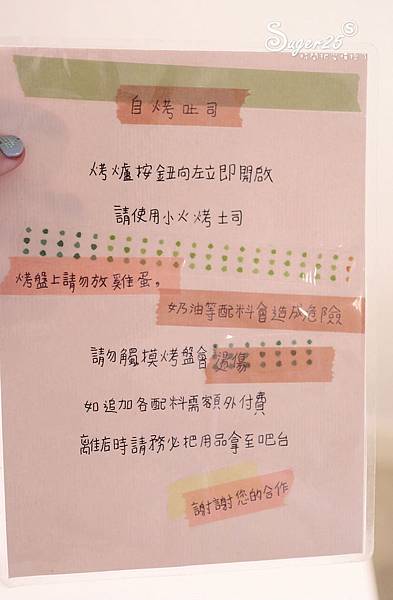 Suger26
自烤吐司
烤爐按鈕向左立即開啟
請使用小火烤土司
烤盤上請勿放雞蛋,
奶油等配料會造成危險
請勿觸摸烤盤會燙傷
如追加各配料需額外付費
離店時請務必把用品拿至吧台
謝謝您的合作